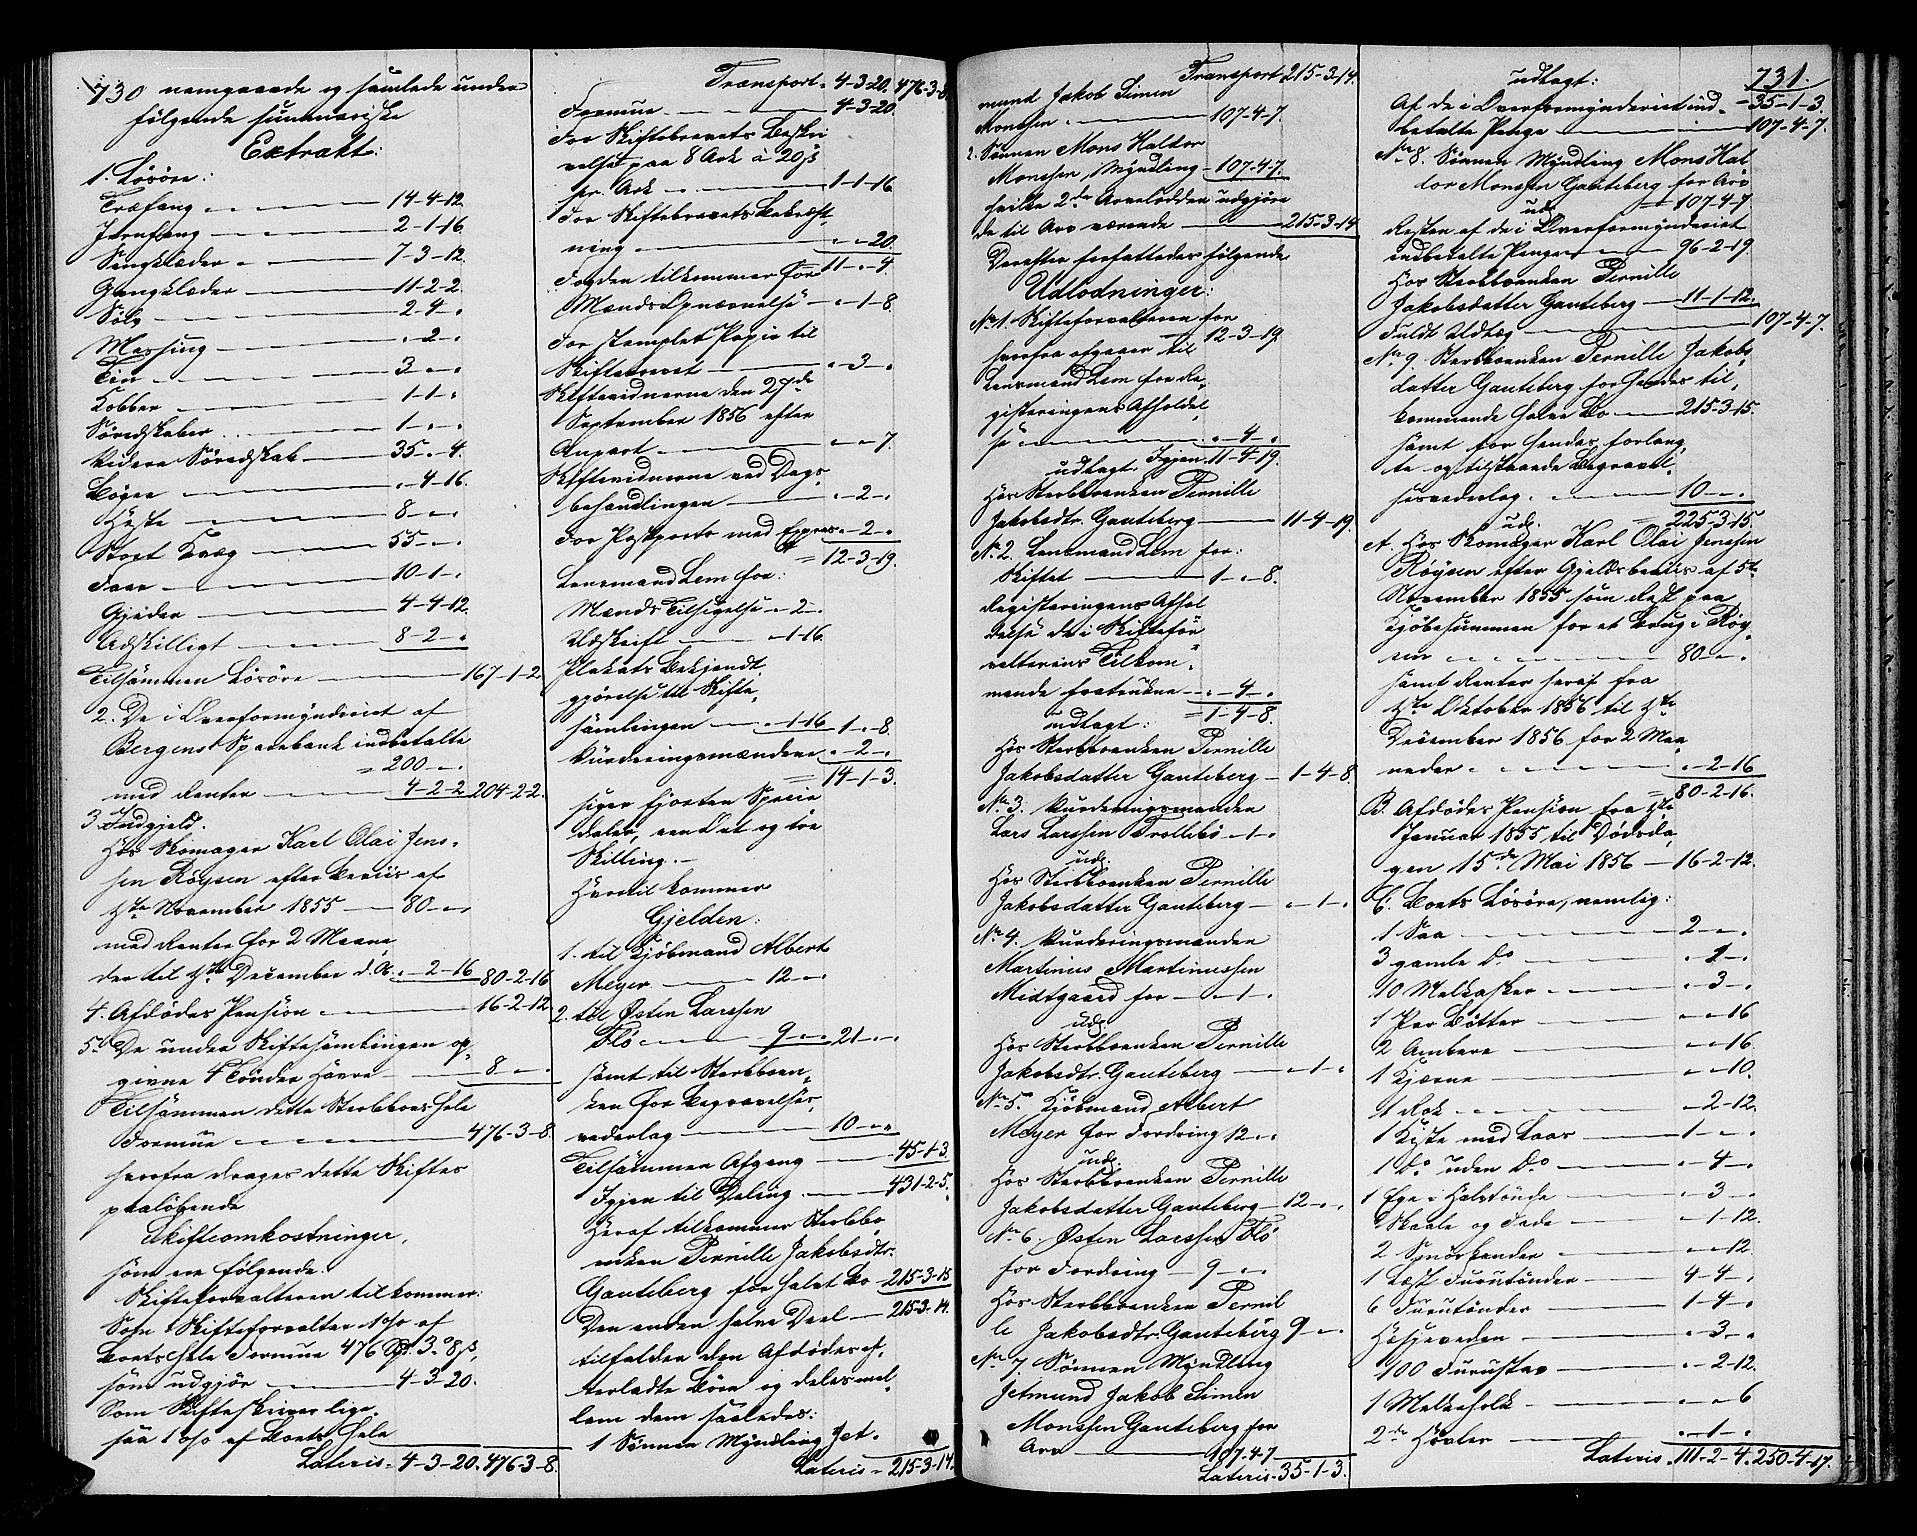 730 nemgaaende og samlede under
følgende summariske
Extrakt:
1. Løsøre:
Træfang 14-4-12
Jernfang 2-1-16
Sengklæder 7-3-12
Gangklæder 11-2-2
Sølv 2-4-"
Messing "-2-"
Tin 3-"-"
Kobber 1-1-"
Søredskaber 1-"-"
Videre Søredskab 35-"-4
Bøger "-4-16
Heste 8-"-"
Stort Kvæg 55-"-"
Faar 10-1-"
Gjeder 4-4-12
Adskilligt 8-2-"
Tilsammen Løsøre 167-1-2
2. De i Overformynderiet af
Bergens Sparebank indbetalte
= 200-"-"
med Renter 4-2-2 204-2-2
3. Indgjeld.
Hos Skomager Karl Olai Jens-
sen Røysen efter Beviis af
5te November 1855 80-"-"
med Renter for 2 Maane
der til 5te December d. A. "-2-16 80-2-16
4. Afdødes Pension 16-2-12
5. De under Skiftesamlingen op-
givne 4 Tønder Havre 8-"-"
Tilsammen dette Sterbboes hele
Formue 476-3-8
hvorfra drages dette Skiftes
paaløbende
Skifteomkostninger,
som ere følgende:
Skifteforvalteren tilkommer:
Som Skifteforvalter 1 o/o af
Boets hele Formue 476 Spd. 3 " 8 ß,
som udgjør 4-3-20
Som Skifteskriver lige-
saa 1 o/o af Boets hele
Lateris 4-3-20 476-3-8
Transport 4-3-20 476-3-8
Formue 4-3-20
For Skiftebrevets Beskri
velse paa 8 Ark à 20 ß
pr. Ark 1-1-16
For Skiftebrevets Bekræft
ning "-"-20
11-"-4
Fogden tilkommer for
Mænds Opnævnelse "-1-8
For stemplet Papir til
Skiftebrevet "-3-"
Skiftevidnerne den 27de
September 1856 efter
Anpart "-"-7
Skiftevidnerne ved Dags-
behandlingen "-2-"
For Postporto med Expres "-2-"
= 12-3-19
Lensmand Lem for:
Mænds Tilsigelse "-2-"
Udskrift "-1-16
Plakats Bekjendt-
gjørelse til Skifte-
samlingen "-1-16 1-"-8
Vurderingsmændene "-2-"
= 14-1-3
siger fjorten Specie
daler, een Ort og tre
Skilling.-
Hvortil kommer
Gjelden:
1. til Kjøbmand Albert
Meyer 12-"
2. til Østen Larssen
Flø 9-"-" 21-"-"
samt til Sterbboen-
ken for Begravelses-
vederlag 10-"-"
Tilsammen Afgang 45-1-3
Igjen til Deling 431-2-5
Heraf tilkommer Sterbbo
enken Pernille Jakobsdtr.
Gauteberg for halvt Bo 215-3-15
Den anden halve Deel 215-3-14
tilfalder den Afdødes ef-
terladte Børn og deles mel-
lem dem saaledes:
1 Sønnen Myndling Jet-
Lateris 215-3-14
Transport 215-3-14
mund Jakob Simen
Monssen 107-4-7
2. Sønnen Mons Haldor
Monssen, Myndling 107-4-7
hvilke 2de Arvelodder udgjøre
de til Arv værende 215-3-14
Derefter forfattedes følgende
Udlodninger:
No 1. Skifteforvalteren for
= 12-3-19
hvorfra afgaaer til
Lensmand Lem for Re-
gisteringens Afholdel
se "-4-"
Igjen 11-4-19
udlagt:
Hos Sterbboenken Pernille
Jakobsdtr. Gauteberg 11-4-19
No 2. Lensmand Lem for:
Skiftet 1-"-8
Registeringens Afhol
delse de i Skiftefor
valterens Tilkom-
mende fratrukne "-4-"
= 1-4-8
udlagt:
Hos Sterbboenken Pernille
Jakobsdatter Gauteberg 1-4-8
No 3. Vurderingsmanden
Lars Larssen Trollebø "-1-"
udl.
Hos Sterbboenken Pernille
Jakobsdatter Gauteberg "-1-"
No 4. Vurderingsmanden
Martinus Martinussen
Midtgaard for "-1-"
udl.
Hos Sterbboenken Pernille
Jakobsdtr. Gauteberg "-1-"
No 5. Kjøbmand Albert
Meyer for Fordring 12-"
udl.
Hos Sterbboenken Pernille
Jakobsdatter Gauteberg 12-"-"
No 6. Østen Larssen Flø
for Fordring 9-"-"
Hos Sterbboenken Pernil
le Jakobsdtr. Gauteberg 9-"-"
No 7. Sønnen Myndling
Jetmund Jakob Simen
Monssen Gauteberg for
Arv 107-4-7
Lateris 35-1-3
731.
udlagt: 35-1-3
Af de i Overformynderiet ind-
betalte Penge 107-4-7
No 8. Sønnen Myndling Mons Hal
dor Monssen Gauteberg for Arv
= 107-4-7
udl.
Resten af de i Overformynderiet
indbetalte Penge 96-2-19
Hos Sterbboenken Pernille
Jakobsdatter Gauteberg 11-1-12
Fuldt Udlæg 107-4-7
No 9. Sterbboenken Pernille Jakobs-
datter Gauteberg for hendes til-
kommende halve Bo 215-3-15
samt for hendes forlang
te og tilstaaede Begravel-
sesvederlag 10-"-"
= 225-3-15
udl.
A. Hos Skomager Karl Olai Jenssen
Røysen efter Gjeldsbeviis af 5te
November 1855 som Rest paa
Kjøbesummen for et Brug i Røy
sen 80-"-"
samt Renter heraf fra
5te Oktober 1856 til 5te
December 1856 for 2 Maa
neder "-2-16
= 80-2-16
B. Afdødes Pension fra 1ste
Januar 1855 til Dødsda-
gen 15de Mai 1856 16-2-12
C. Boets Løsøre, nemlig:
1 Saa 2-"
3 gamle Do "-1-"
10 Melkasker "-3-"
1 Par Bøtter "-"-16
2 Ambere "-"-16
1 Kjærne "-"-10
1 Rok "-2-12
1 Kiste med Laas 1-"-"
1 Do uden Do "-4-"
1 Ege i Halvtønde "-3-"
Skaale og Fade "-1-12
2 Smørkander "-"-12
1 Læst Furutønder 4-4-"
6 Furutønder 1-4-"
Høsjeveden "-3-"
100 Furustav "-2-12
1 Melkeholk "-"-6
2de Høvler "-1-"
Lateris 111-2-4 250-4-17